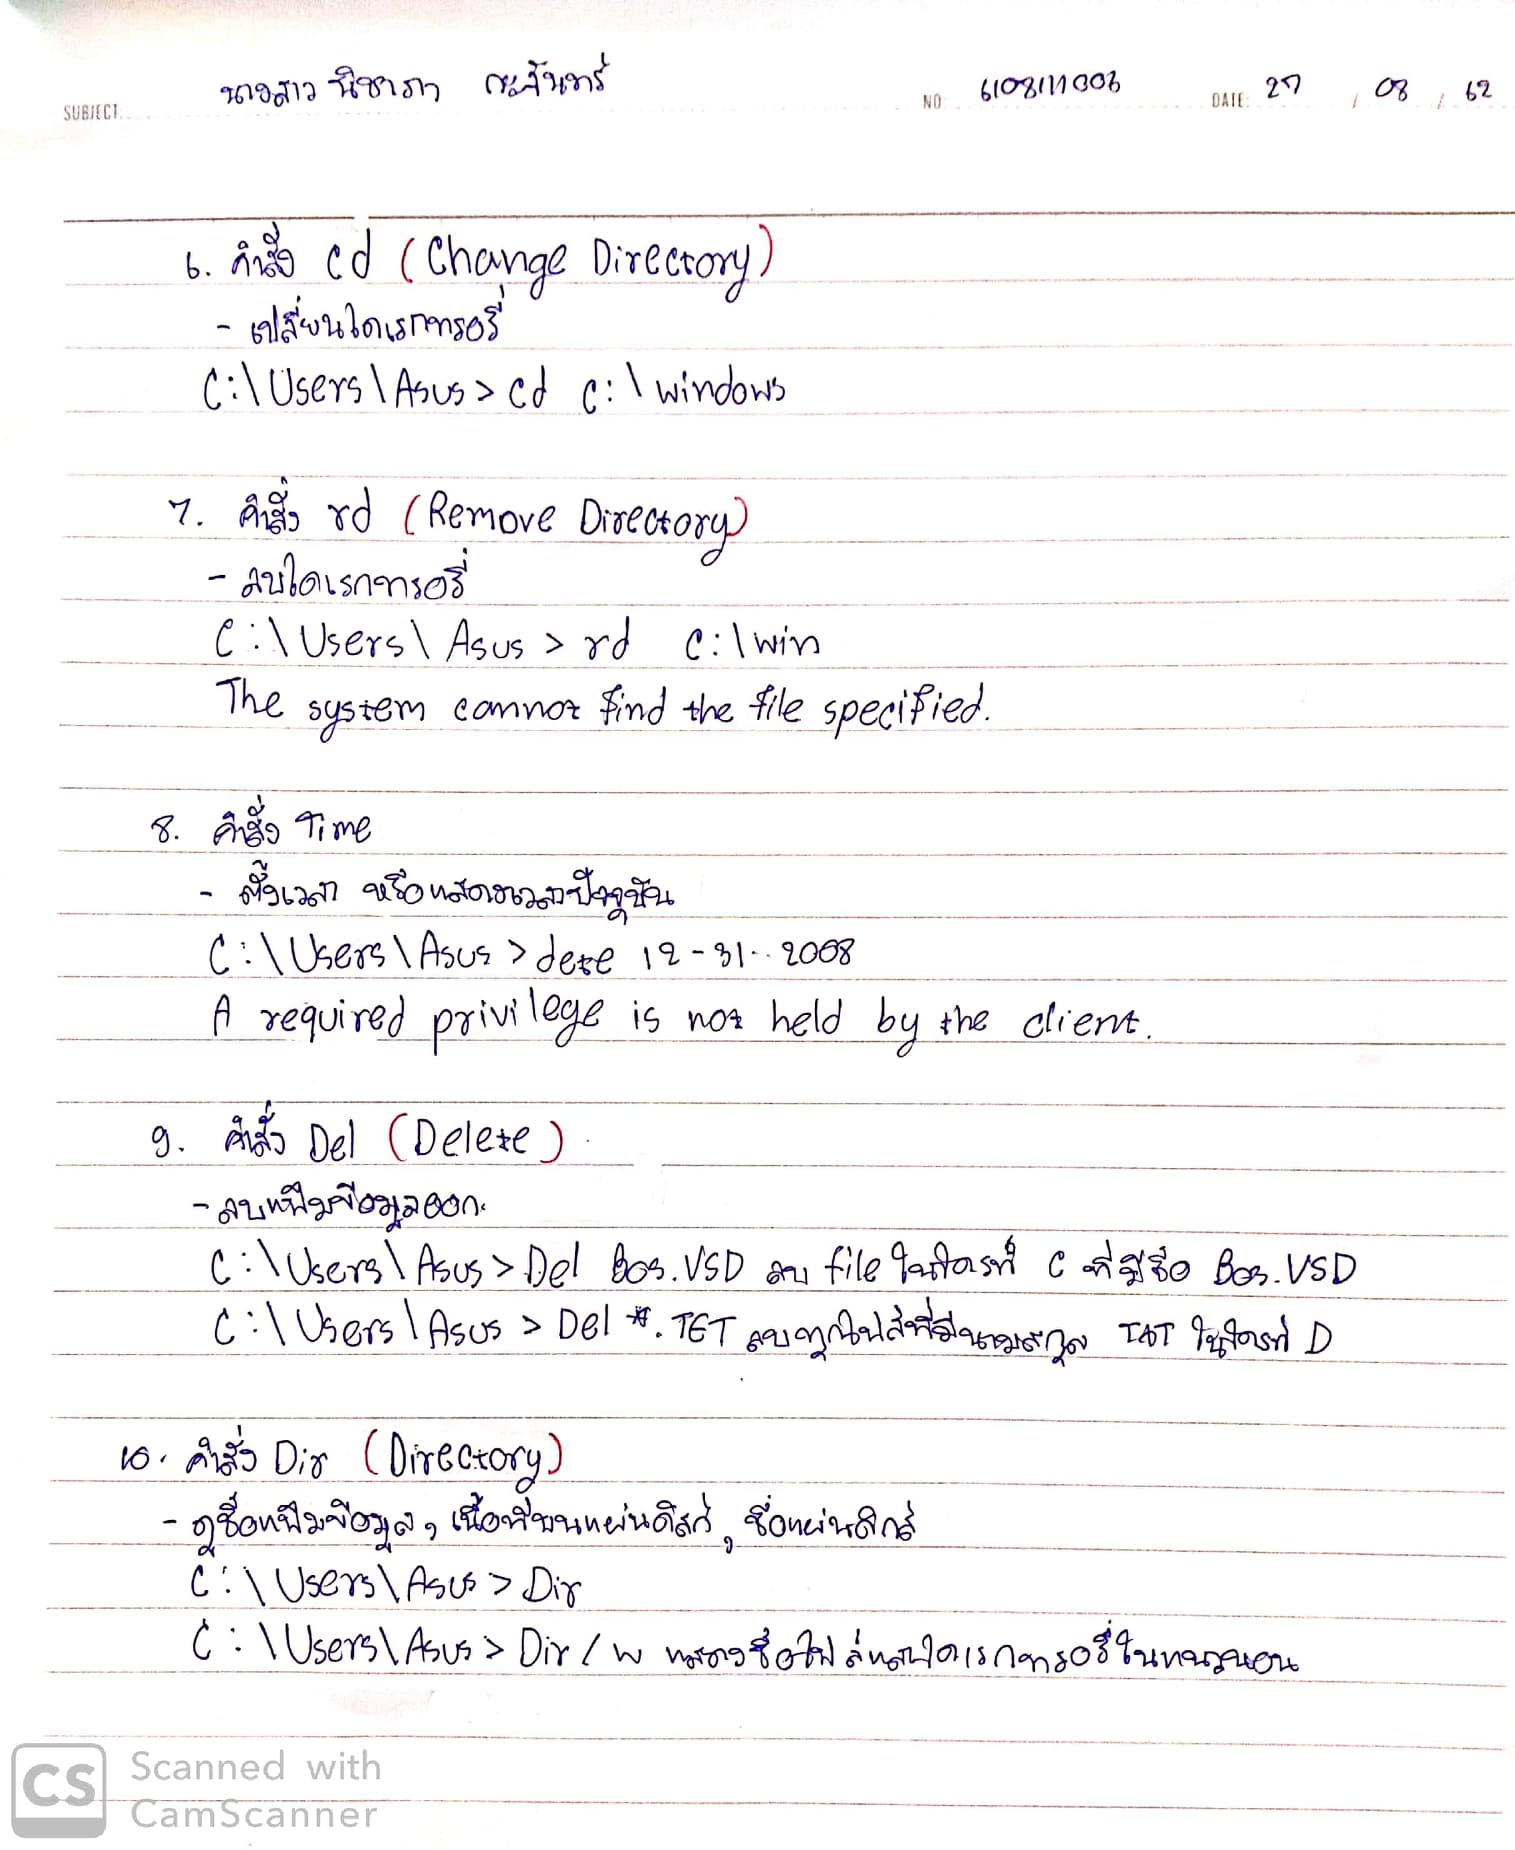 SUBJECT นางสาว นิชาภา กะจันทร์ NO 6108111006 DATE: 27 / 08 / 62
6. คำสั่ง cd (Change Directory)
- เปลี่ยนไดเรกทอรี่
C:\Users\Asus> cd c:\windows
7. คำสั่ง rd (Remove Directory)
- ลบไดเรกทอรี่
C:\Users\Asus > rd c:\win
The system cannot find the file specified.
8. คำสั่ง Time
- ตั้งเวลา หรือแสดงเวลาปัจจุบัน
C:\Users\Asus >dete 12-31-2008
A required privilege is not held by the client.
9. คำสั่ง Del (Delete)
- ลบแฟ้มข้อมูลออก
C:\Users\Asus>Del Bos.VSD ลบ file ในไดรฟ์ C ที่มีชื่อ Bos.VSD
C:\Users\Asus > Del *.TET ลบทุกไฟล์ที่มีนามสกุล TAT ในไดรฟ์ D
10. คำสั่ง Dir (Directory)
- ดูชื่อแฟ้มข้อมูล, เนื้อที่บนแผ่นดิสก์, ชื่อแผ่นดิกส์
C:\Users\Asus > Dir
C:\Users\Asus > Dir /w แสดงชื่อไฟล์และไดเรกทอรี่ในแนวนอน
CS Scanned with
CamScanner